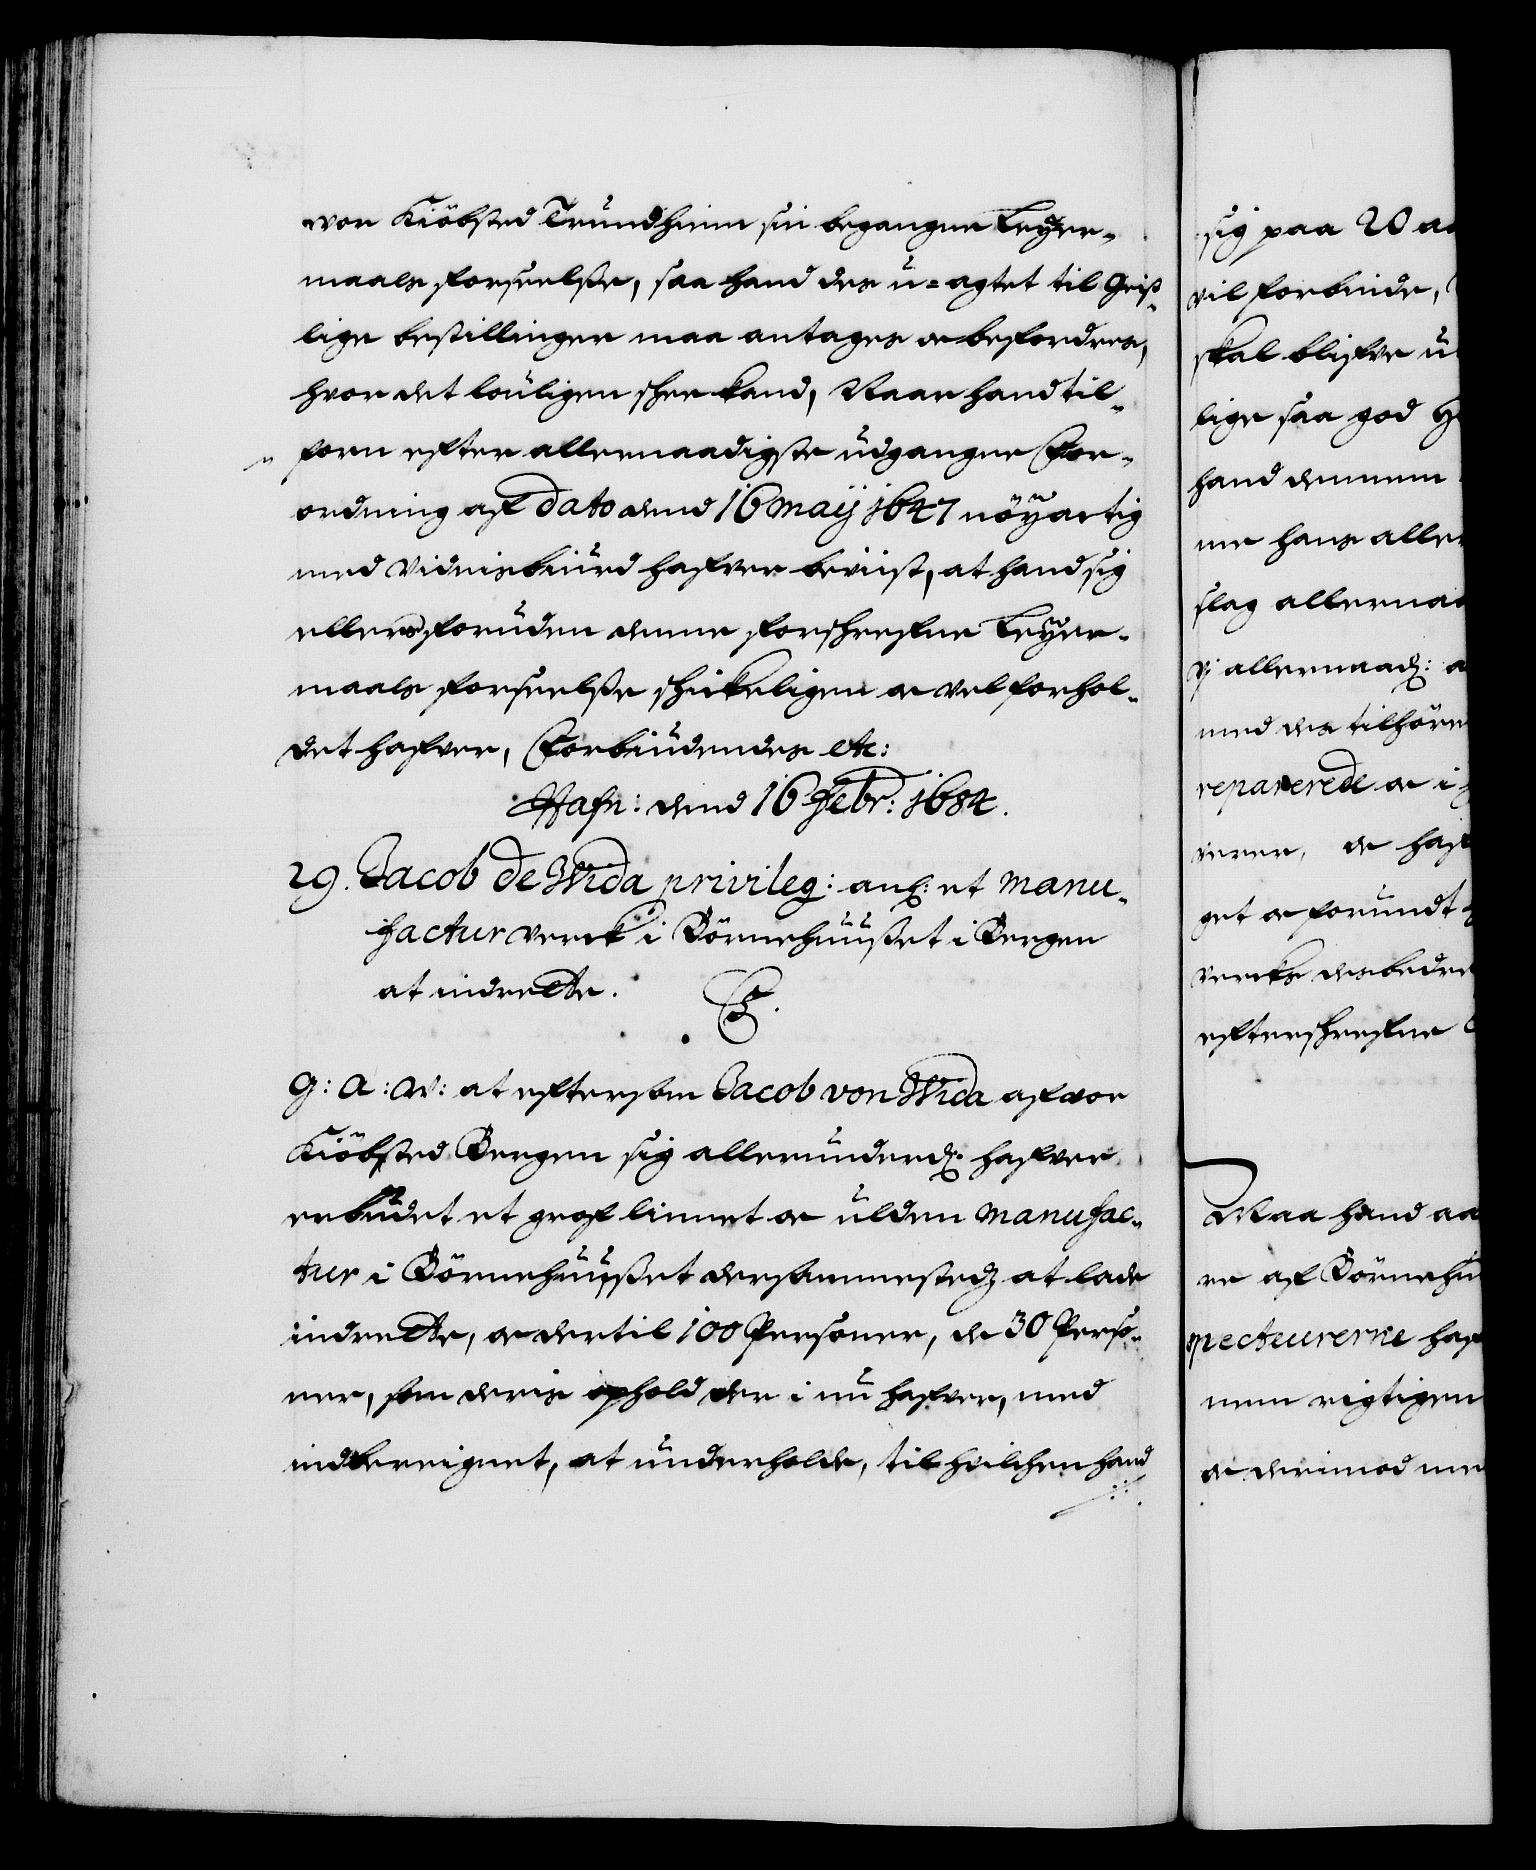 vor Kiöbsted Trundhiem sin begangne Leyer-
maals forseelsse, saa hand des u=agtet til Geist-
lige bestillinger maa antages oc befordres,
hvor det louligen skee kand, Naar hand til-
forn efter allernaadigste udgangne For-
ordning af dato dend 16 maij 1647 nöyactig
med Vidnisbiurd hafver beviist, at hand sig
ellers foruden denne forskrefne Leyer-
maals forseelse skickeligen oc vel forhol-
det hafver, Forbiudendes etc:
Hafn: dend 16 Febr: 1684.
29. Jacob de Wida privileg: anl: et manu-
factur verck i Börnehuusset i Bergen
at indrette.
G: A: V: at eftersom Jacob von Wida af vor
Kiöbsted Bergen sig allerunderd: hafver
erbudet et grof linnet oc ulden manufac-
tur i Börnehuusset dersammestedz at lade
indrette, oc dertil 100 Personer, de 30 Perso-
ner, som deris ophold der i nu hafver, med
indbereignet, at underholde, til hvilchen hand
sig paa
vil forbinde,
skal blifve
lige saa god
hand dennem
me hans aller
slag allernaa
Vj allernaad:
med des tilhören
reparerede oc i
verer, oc haf
get oc forundt
vercks desbedre
efterskrefne
Maa hand aa
re af Börnehu
specteurerne haf
nem rigtigen
oc derimod